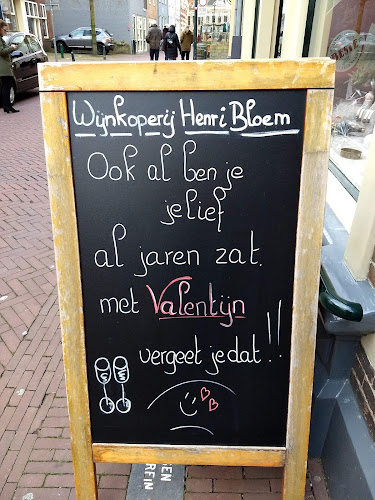 Wijnkoperij Henri Bloem
Ook al ben je
je lief
al jaren zat.
met Valentijn
vergeet je dat!!